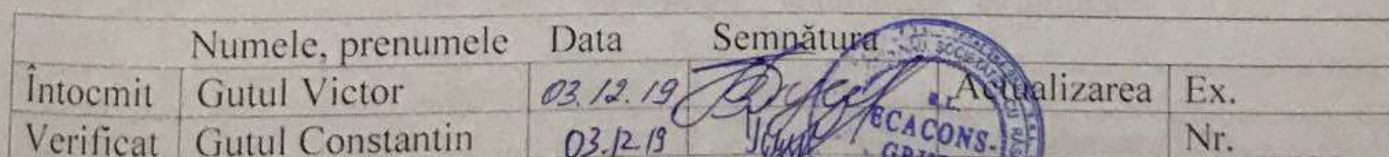 Numele, prenumele Data Semnătura
Întocmit Gutul Victor 03.12.19 Actualizarea Ex.
Verificat Gutul Constantin 03.12.19 Nr.
ECACONS-